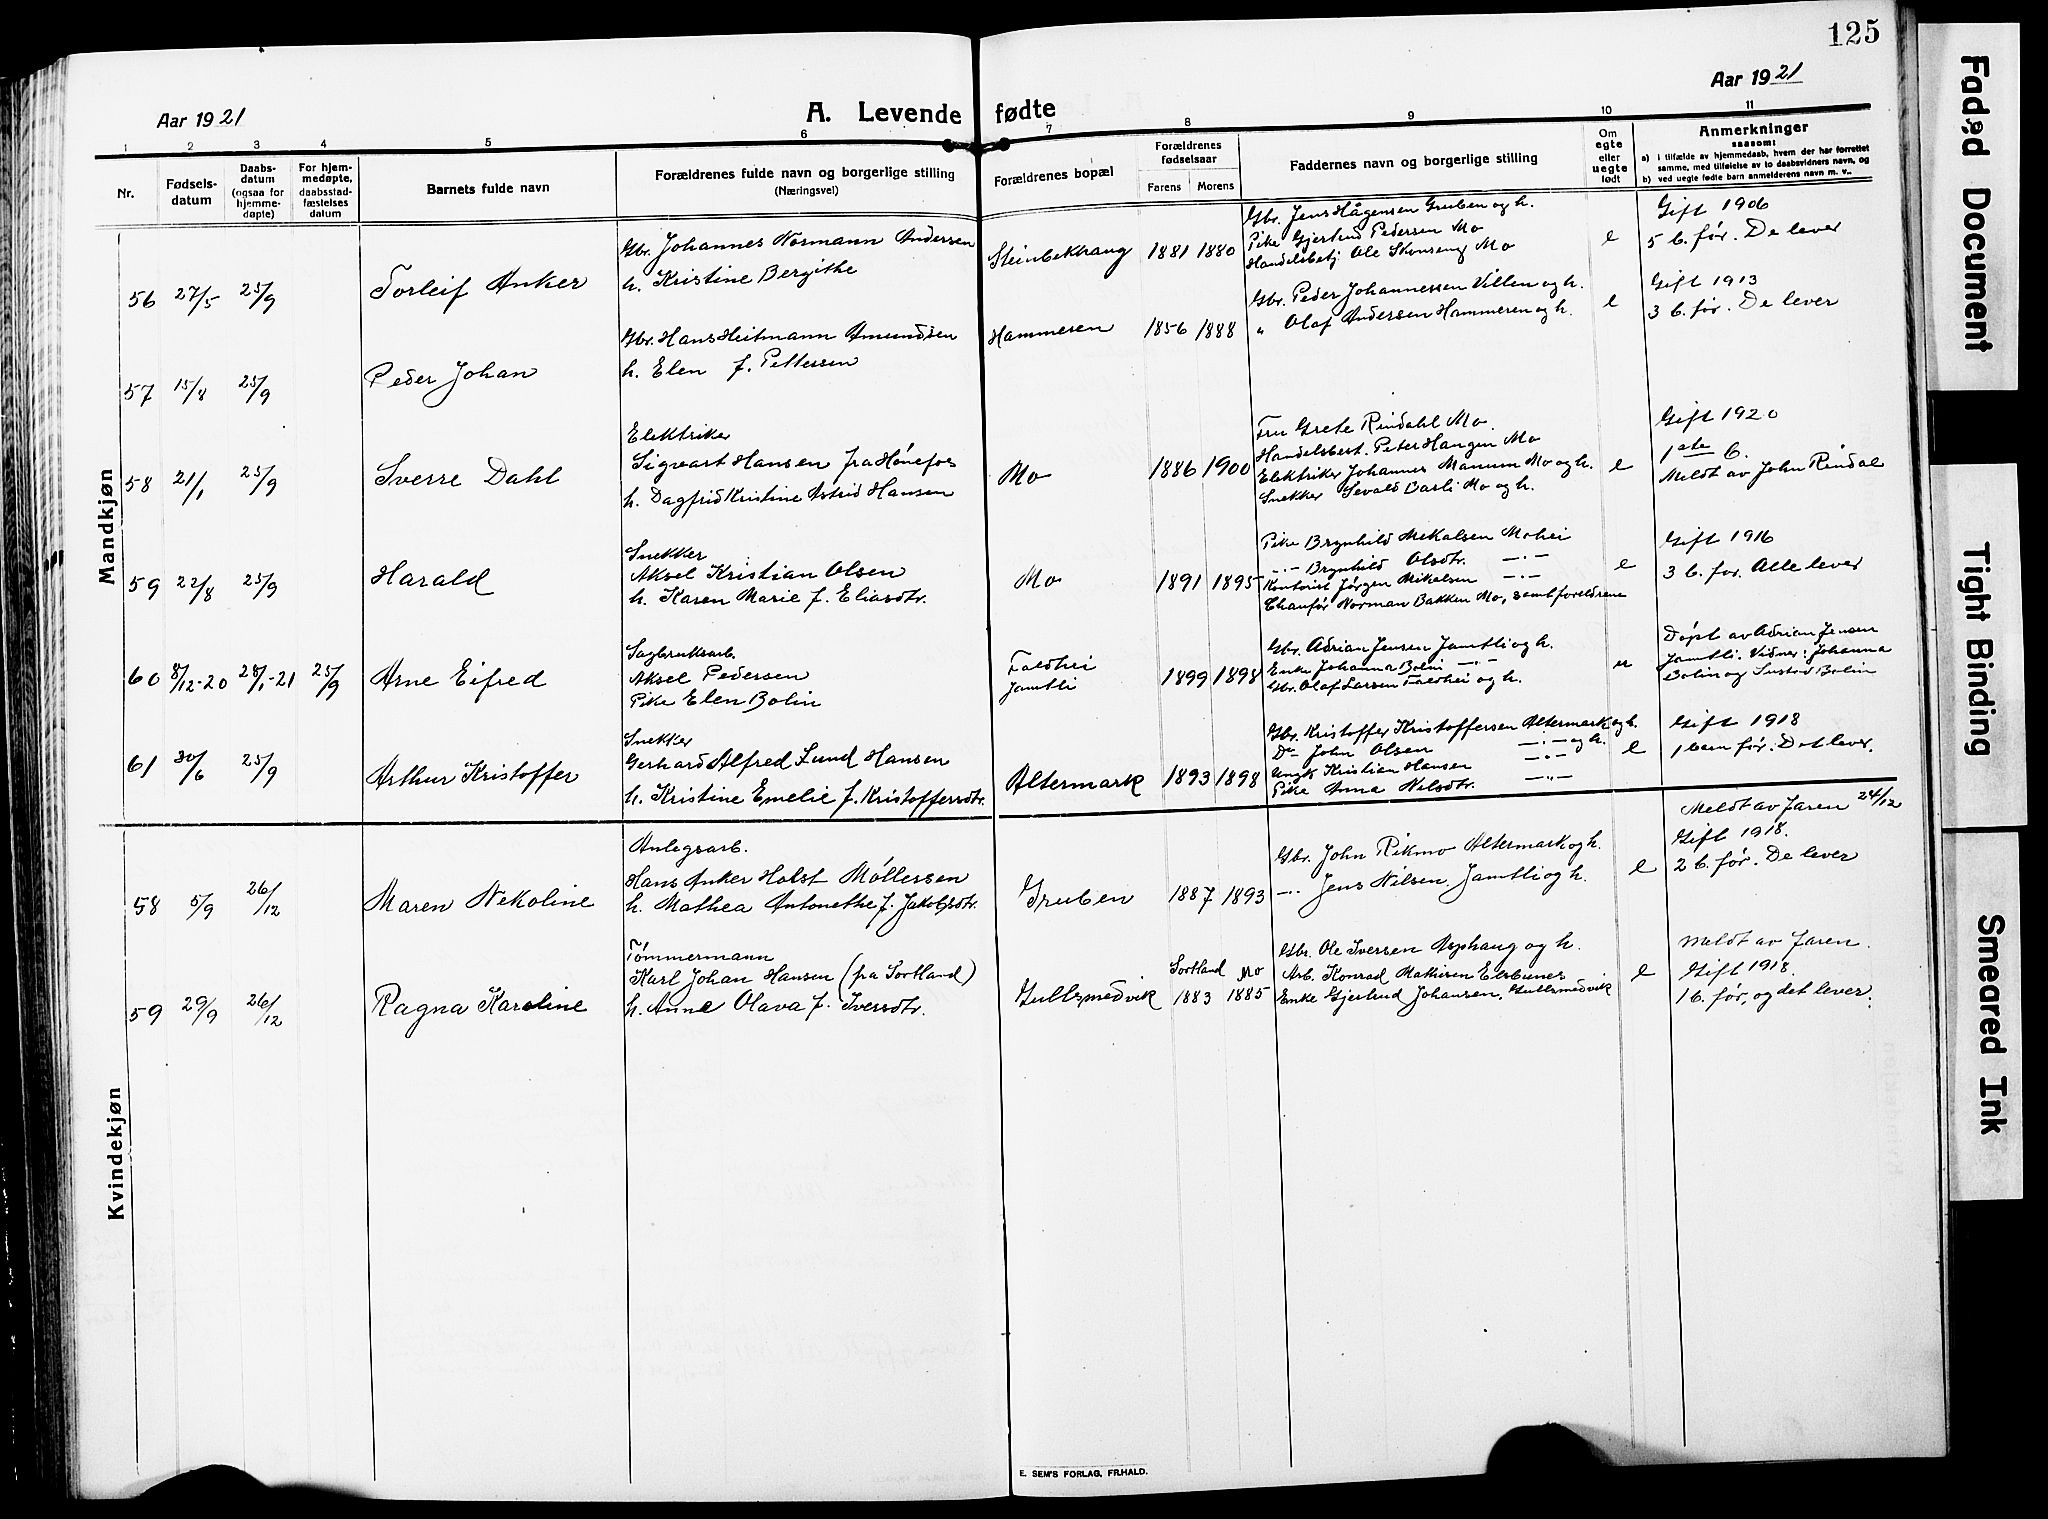 125
Aar 1921
A. Levende fødte
Aar 1921
1 2 3 4 5 6 7 8 9 10 11
Nr.
Fødsels-
datum
Daabs-
datum
(ogsaa for
hjemme-
døpte)
For hjem-
medøpte,
daabsstad-
fæstelses
datum
Barnets fulde navn
Forældrenes fulde navn og borgerlige stilling
(Næringsvei)
Forældrenes bopæl
Forældrenes
fødselsaar
Farens Morens
Faddernes navn og borgerlige stilling
Om
egte
eller
uegte
født
Anmerkninger
saasom:
a) i tilfælde av hjemmedaab, hvem der har forrettet
samme, med tilføielse av to daabsvidners navn, og
b) ved uegte fødte barn anmelderens navn m. v..
Mandkjøn
56 27/5 25/9 Torleif Anker
Gbr. Johannes Normann Andersen
h. Kristine Bergithe
Steinbekhaug 1881 1880
Gbr. Jens Hågensen Gruben og h.
Pike Gjertrud Pedersen Mo
Handelsbetj Ole Skonseng Mo
e
Gift 1906
5 b. før. De lever
57 15/8 25/9 Peder Johan
Gbr. Hans Heitmann Amundsen
h. Elen f. Pettersen
Hammeren 1856 1888
Gbr. Peder Johannessen Villen og h.
" Olaf Andersen Hammeren og h.
e
Gift 1913
3 b. før. De lever
58 21/1 25/9 Sverre Dahl
Elektriker
Sigvart Hansen fra Hønefos
h. Dagfrid Kristine Astrid Hansen
Mo 1886 1900
Fru Grete Rindahl Mo.
Handelsbest. Peter Haugen Mo
Elektriker Johannes Manum Mo og h.
Snekker Sevald Barli Mo og h.
e
Gift 1920
1ste b.
Meldt av John Rindal
59 22/8 25/9 Harald
Snekker
Aksel Kristian Olsen
h. Karen Marie f. Eliasdtr.
Mo 1891 1895
Pike Brynhild Mikalsen Mohei
-"- Brynhild Olsdtr. -"-
Kontorist Jørgen Mikalsen -"-
Chauför Norman Bakken Mo, samt foreldrene
e
Gift 1916
3 b. før. Alle lever
60 8/12-20 28/1-21 25/9 Arne Eifred
Sagbruksarb.
Aksel Pedersen
Pike Elen Bolin
Faldhei
Jamtli
1899 1898
Gbr. Adrian Jensen Jamtli og h.
Enke Johanna Bolin -"-
Gbr. Olaf Larsen Faldhei og h.
u
Døpt av Adrian Jensen
Jamtli. Vidner: Johanna
Bolin og Bolin
61 30/6 25/9 Arthur Kristoffer
Snekker
Gerhard Alfred Lund Hansen
h. Kristine Emelie f. Kristoffersdtr.
Altermark 1893 1898
Gbr. Kristoffer Kristoffersen Altermark og h.
Do John Olsen -"- og h.
Ungk. Kristian Hansen -"-
Pike Anna Nilsdtr. -"-
e
Gift 1918
1 barn før. Det lever.
Kvindekjøn
58 5/9 26/12 Maren Nekoline
Anlegsarb.
Hans Anker Holst Møllersen
h. Mathea Antonethe f. Jakobsdtr.
Gruben 1887 1893
Gbr. John Rikmo Altermark og h.
-"- Jens Nilsen, Jamtli og h.
e
Meldt av faren 24/12
Gift 1918.
2 b. før. De lever
59 29/9 26/12 Ragna Karoline
Tømmermann
Karl Johan Hansen (fra Sortland)
h. Anne Olava f. Iversdtr.
Gullsmedvik
Sortland Mo
1883 1885
Gbr. Ole Iversen Asphaug og h.
Arb. Konrad Mathisen
Enke Gjertrud Johansen, Gullsmedvik
e
Meldt av faren.
Gift 1918.
1 b. før, og det lever.
E. SEM'S FORLAG, FR.HALD.
Faded Document
Tight Binding
Smeared Ink